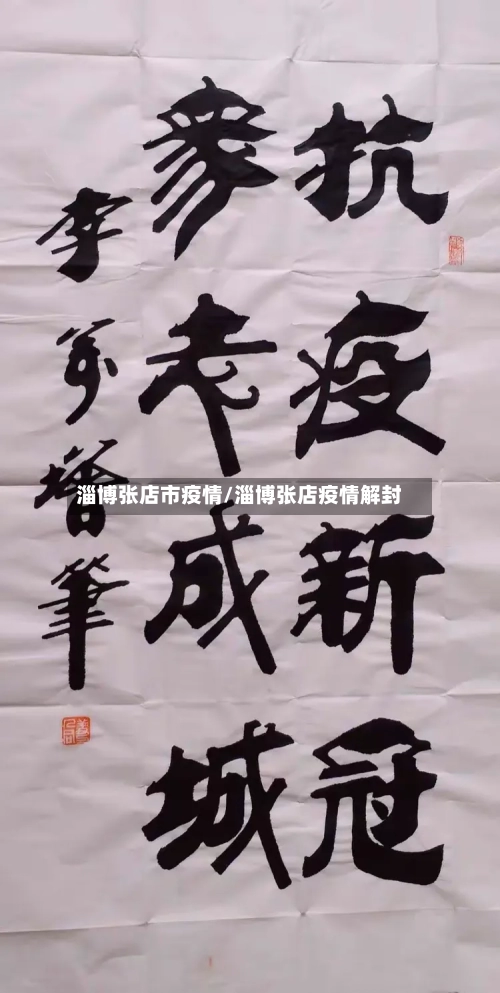 抗疫新冠
衆志成城
李萬增筆
淄博张店市疫情/淄博张店疫情解封